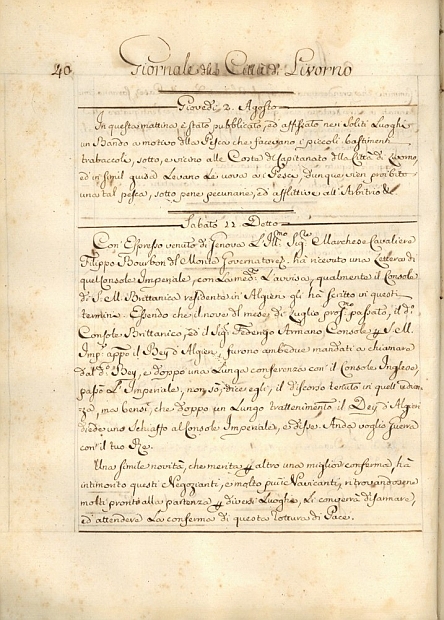 40 Giornale della Città di Livorno
Giovedì 2. Agosto
In questa mattina è stato pubblicato, ed affissato nei Soliti Luoghi
un Bando a motivo della Pesca che facevano i piccoli bastimenti
trabaccole, sotto, e vicino alle Coste di Capitanato della Città di Livorno,
ed in simil guisa Levano Le uova ai Pesci, dunque vien proibito
una tal pesca, sotto pene pecuniarie, ed afflittive all'Arbitrio &
Sabato 11 Detto
Con Espresso venuto di Genova L'Ill.mo Sig.re Marchese Cavaliere
Filippo Bourbon del Monte Governatore ha ricevuto una Lettera di
quel Console Imperiale, con La med.a L'avvisa, qualmente il Console
di S. M. Brittanica residente in Algieri gli ha scritto in questi
termini. Essendo che il nove del mese di Luglio pros.mo passato, il d.o
Console Brittanico, ed il Sig.r Federigo Armano Console p S. M.
Imp.e appo il Bey d'Algieri, furono ambedue mandati a chiamare
dal d.o Bey, e doppo una Lunga conferenza con il Console Inglese,
passò L'Imperiale, non sò, dice egli, il discorso tenuto in quell'udien-
za, mà bensì, che doppo un Lungo trattenimento il Dey d'Algieri
diede uno Schiaffo al Console Imperiale, e disse. Anda voglio guerra
con il tuo Re.
Una simile novità, che merita p altro una miglior conferma, hà
intimorito questi Negozianti, e molto più i Navicanti, ritrovandosene
molti pronti alla partenza p diversi Luoghi, Li converrà disarmare,
ed attendere La conferma di questa rottura di Pace.